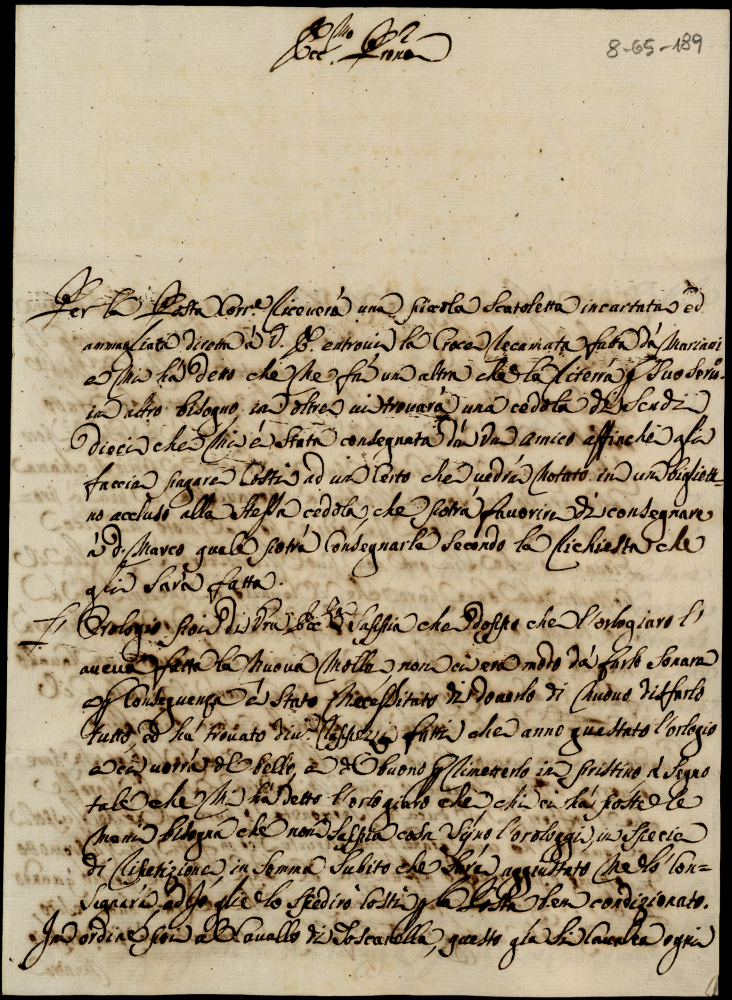 Ecc.mo Prone
8-65-189
Per la Posta Corr.e riceverà una piccola Scatoletta incartata ed
ammagliata diretta à V. E. entrovi la Croce ricamata fatta da Mariani
e mi hà detto che ne fà un altra che la riterrà p Suo Serv.o
in altro bisogno, in oltre vi trovarà una cedola di Scudi
dieci che mi è stata consegnata da un amico affinche gli
faccia pagare costì ad un certo che vedrà notato in un bigliett=
no accluso alla stessa cedola, che potrà favorire di consegnare
à d. Marco quale potrà consegnarla secondo la richiesta che
gli sarà fatta.
L'Orologio poi di Vra Ecc.za sappia che doppo che l'orlogiaro l'
aveva fatta la nuova molla, non ci era modo da farlo sonare
e p conseguenza è stato necessitato di doverlo di nuovo disfarlo
tutto, ed hà trovato div.i fatti che anno guastato l'orlogio
e ci vorrà del bello, e del buono p rimetterlo in pristino à segno
tale che mi hà detto l'orlogiaro che chi ci hà poste le
mani bisogna che non sappia cosa siano l'orologgi, in specie
di ripetizione, in somma subito che sarà aggiustato me lo con=
segnarà, ed Io glie lo spedirò costì p la Posta ben condizionato.
In ordine poi al Cavallo di Toscanella, questo già si cavalca ogni